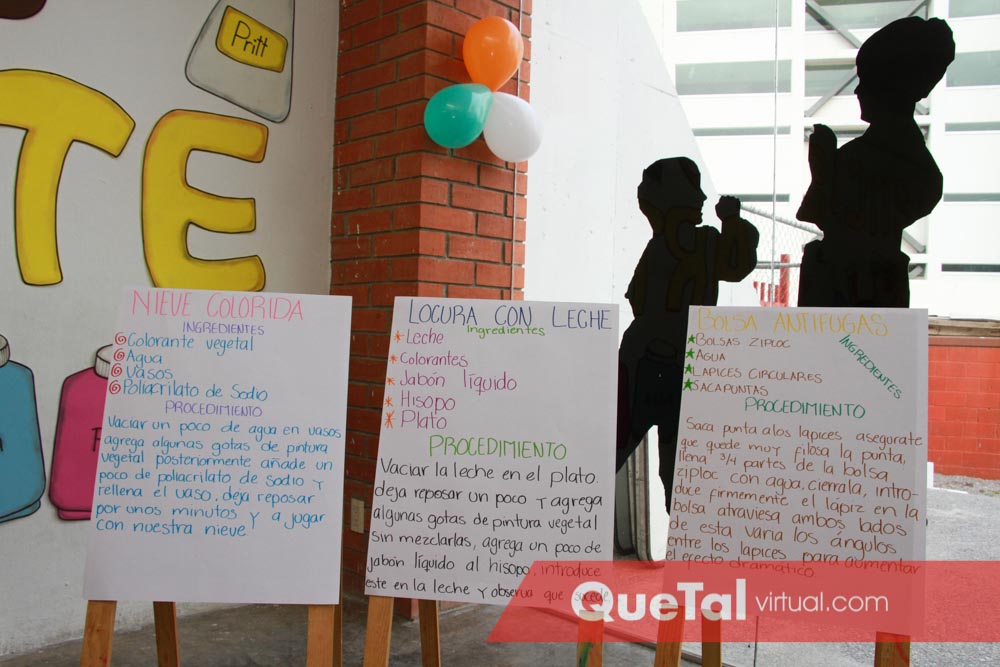 Pritt
TE
NIEVE COLORIDA
INGREDIENTES
Colorante vegetal
Agua
Vasos
Poliacrilato de Sodio
PROCEDIMIENTO
Vaciar un poco de agua en vasos
agrega algunas gotas de pintura
vegetal posteriormente añade un
poco de poliacrilato de sodio y
rellena el vaso, deja reposar
por unos minutos y a jugar
con nuestra nieve.
LOCURA CON LECHE
Ingredientes
Leche
Colorantes
Jabón líquido
Hisopo
Plato
PROCEDIMIENTO
Vaciar la leche en el plato.
deja reposar un poco y agrega
algunas gotas de pintura vegetal
sin mezclarlas, agrega un poco de
jabón líquido al hisopo, introduce
este en la leche y observa que sucede
BOLSA ANTIFUGAS
INGREDIENTES
BOLSAS ZIPLOC
AGUA
LAPICES CIRCULARES
SACAPUNTAS
PROCEDIMIENTO
Saca punta alos lapices asegurate
que quede muy filosa la punta,
llena 3/4 partes de la bolsa
ziploc con agua, cierrala, intro-
duce firmemente el lápiz en la
bolsa atraviesa ambos lados
de esta varia los ángulos
entre los lapices para aumentar
el efecto dramático
QueTal virtual.com